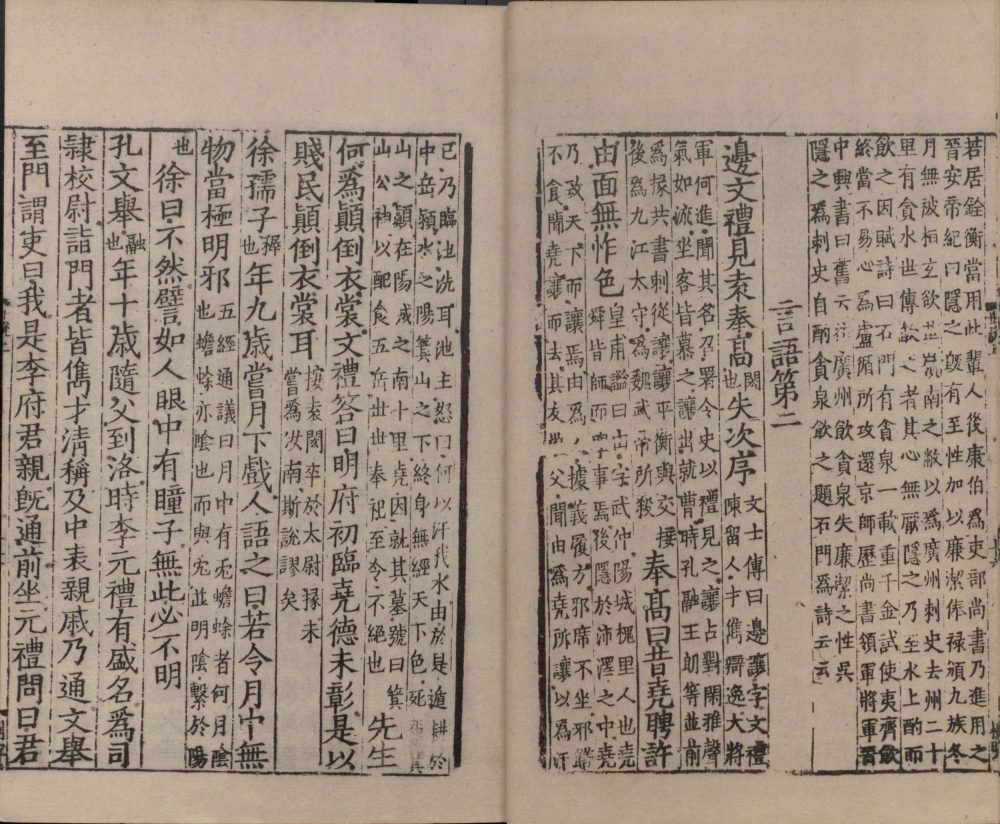 若居銓衡當用此輩人後康伯爲吏部尚書乃進用之
晉安帝紀曰隱之旣有至性加以廉潔俸祿頒九族冬
月無被桓玄欲革嶺南之敝以爲廣州刺史去州二十
里有貪水世傳飲之者其心無厭隱之乃至水上酌而
飲之因賦詩曰石門有貪泉一歃重千金試使夷齊飲
終當不易心爲盧循所攻還京師歷尚書領軍將軍晉
中興書曰舊云往廣州飲貪泉失廉潔之性吳
隱之爲刺史自酌貪泉飲之題石門爲詩云云
言語第二
邊文禮見袁奉高閬也失次序文士傳曰邊讓字文禮
陳留人才雋辯逸大將
軍何進聞其名召署令史以禮見之讓占對閑雅聲
氣如流坐客皆慕之讓出就曹時孔融王朗等並前
爲掾共書刺從讓讓平衡與交接
後爲九江太守爲魏武帝所殺奉高曰昔堯聘許
由面無怍色皇甫謐曰由字武仲陽城槐里人也堯
舜皆師而學事焉後隱於沛澤之中堯
乃致天下而讓焉由爲人據義履方邪席不坐邪饍
不食聞堯讓而去其友巢父聞由爲堯所讓以爲汙
已乃臨池洗耳池主怒曰何以汙我水由於是遁耕於
中岳潁水之陽箕山之下終身無經天下色死葬箕
山之巔在陽成之南十里堯因就其墓號曰箕
山公神以配食五岳世世奉祀至今不絕也先生
何爲顚倒衣裳文禮答曰明府初臨堯德未彰是以
賤民顚倒衣裳耳按袁閬卒於太尉掾未
嘗爲汝南斯說謬矣
徐孺子穉也年九歲嘗月下戲人語之曰若令月中無
物當極明邪五經通議曰月中有兎蟾蜍者何月陰
也蟾蜍亦陰也而與兎並明陰繫於陽
也徐曰不然譬如人眼中有瞳子無此必不明
孔文舉融也年十歲隨父到洛時李元禮有盛名爲司
隸校尉詣門者皆儁才淸稱及中表親戚乃通文舉
至門謂吏曰我是李府君親旣通前坐元禮問曰君